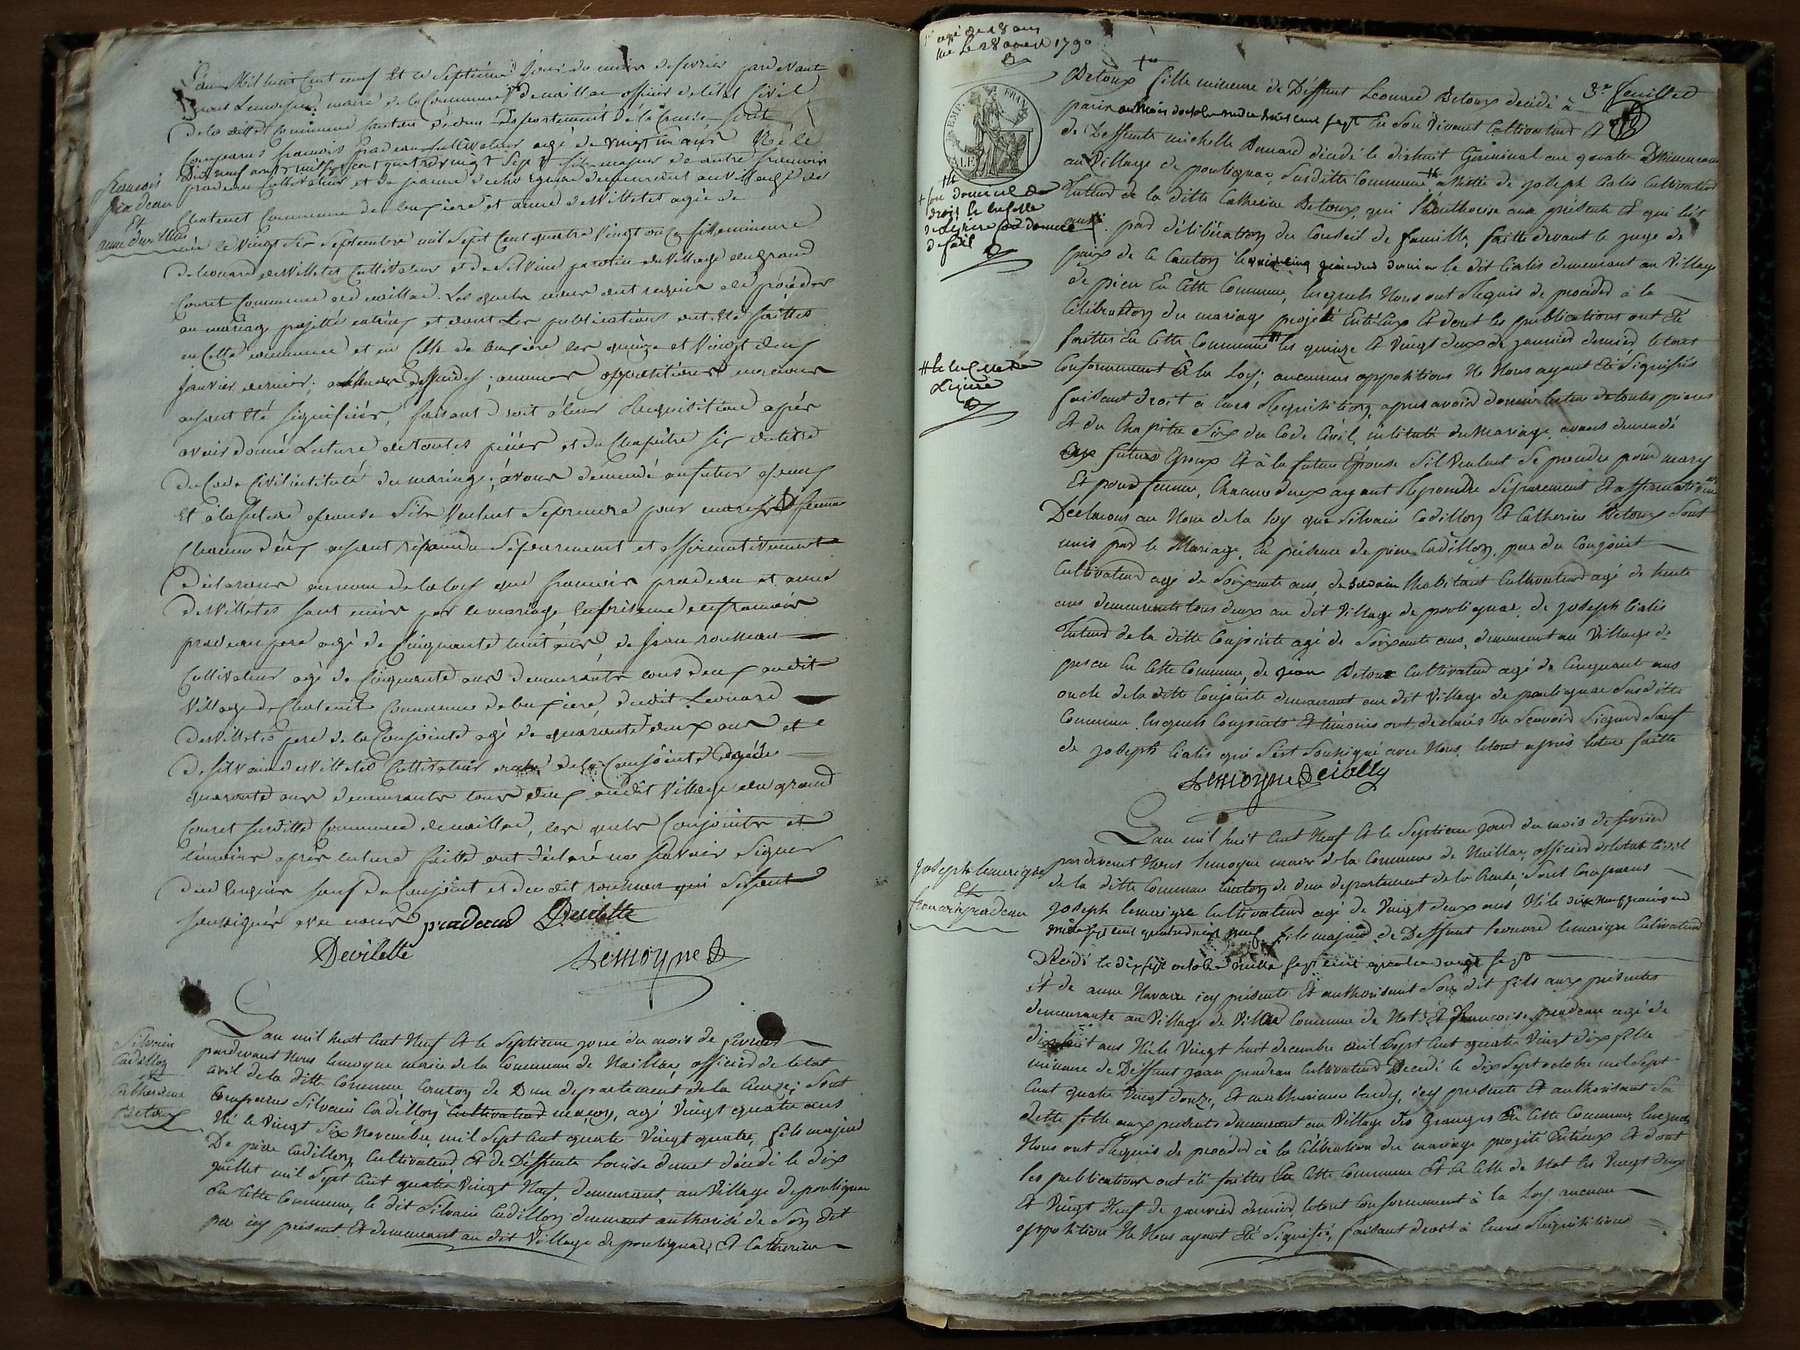 L'an Mil huit Cent neuf Et le Septieme Jour du mois de fevrier pardevant
nous Lemoyne maire de la Commune de naillac officier de letat Civil
de la ditte Commune Canton de dun Departement de la Creuse Sont
Comparus francois pradeau Cultivateur agé de vingt un ans Né le
Dix neuf aout mil sept cent quatre vingt sept fils majeur de autre francois
pradeau Cultivateur et de jeanne demeurant au village de
francois
pradeau
Et
anne devilletes
Chatenet Commune de la bussiere et anne deVilletes agée de
née le vingt Six Septembre mil Sept Cent quatre vingt onze fille mineure
de leonard deVilletes Cultivateur et de Silvine parotin du village du grand
Couret Commune de naillac. Les quels nous ont requis de proceder
au mariage projetté entreux et dont Les publications ont été faittes
en Cette commune et en Celle de bussiere les quinze et Vingt deux
janvier dernier; aucune opposition
ayant été Signifiée, faisant droit à leur Requisition après
avoir donné Lecture de toutes pieces et du Chapitre Six du titre
du Code Civil intitulé du mariage; avons demandé au futur epoux
Et à la future epouse S'ils Veulent Se prendre pour mary Et femme
Chacun deux ayant répondu Séparement et affirmativement
Déclarons au nom de la loy que francois pradeau et anne
deVilletes Sont unis par le mariage En présence de francois
pradeau pere agé de Cinquante huit ans de Jean rousseau
Cultivateur agé de Cinquante ans demeurants tous deux audit
Village de Chatenet Commune de bussiere, dudit Leonard
deVilletes pere de la Conjointe agé de quarante deux ans et
de Silvain deVilletes Cultivateur oncle de la Conjointe agé de
quarante ans demeurants tous deux audit Village du grand
Couret Susditte Commune de naillac, les quels Conjoints et
témoins après lecture faitte ont déclaré ne Savoir Signer
de ce Enquis Sauf du Conjoint et du dit rousseau qui Se Sont
Soussignés avec nous pradeau Devilette
Devilette Lemoyne
L'an mil huit Cent Neuf Et le Septieme jour du mois de fevrier
Silvain
Cadillon
Catherine
Betoux
pardevant Nous lemoyne maire de la Commune de Naillac, officier de letat
Civil de la ditte Commune Canton de Dun departement de la Creuse; Sont
Comparus Silvain Cadillon Cultivateur maçon, agé Vingt quatre ans
Né le Vingt Six Novembre mil Sept Cent quatre Vingt quatre, fils majeur
De pierre Cadillon Cultivateur Et de Deffunte Louise dunet décédé le dix
juillet mil Sept Cent quatre Vingt Neuf, demeurant au Village de poulignac
En Cette Commune, le dit Silvain Cadillon demeurant authorisé de Son dit
pere icy present Et demeurant au dit Village de poulignac, Et Catherine
agé de 18 ans
née le 28 avril 1790
Betoux fille mineure de Deffunt Léonard Betoux décédé à
3e feuillet
paris au mois d'octobre mil huit cent sept En Son Vivant Cultivateur &
de Deffunte michelle Durand décédé le dixhuit Germinal an quatre Demeurant
au Village de poulignac, Susditte Commune assistée de joseph Cialis Cultivateur
Tuteur de la ditte Catherine Betoux, qui l'authorise aux présente Et qui l'est
aussi par déliberation du Conseil de famille faitte devant le juge de
paix de Ce Canton le vingt cinq janvier dernier le dit Cialis demeurant au Village
de pieou En Cette Commune, lesquels Nous ont Requis de proceder à la
Célébration du mariage projetté Entreux Et dont les publications ont été
faittes En Cette Commune les quinze Et Vingt deux de janvier dernier le tout
Conformement à la Loy; aucunes oppositions Ne Nous ayant été Signifiés
faisant droit à leurs Requisition, après avoir donné lecture de toutes pieces
Et du Chapitre Six du Code Civil, intitulé du Mariage avons demandé
aux futurs Epoux Et à la future Epouse S'il Veulent Se prendre pour mary
Et pour femme, Chacun deux ayant Répondu Séparement Et affirmativement
Declarons au Nom de la loy que Silvain Cadillon Et Catherine Betoux Sont
unis par le Mariage. En présence de pierre Cadillon, pere du Conjoint
Cultivateur agé de Soixante ans, de Silvain habitant Cultivateur agé de trente
ans demeurants tous deux au dit Village de poulignac. de joseph Cialis
Tuteur de la ditte Conjointe agé de Soixante ans, demeurant au Village de
pieou En Cette Commune, de jean Betoux Cultivateur agé de Cinquant ans
oncle de la ditte Conjointe demeurant au dit Village de poulignac Susditte
Commune lesquels Conjoints Et témoins ont declarés Ne Scavoir Signer Sauf
de joseph Cialis qui S'est Soussigné avec Nous, letout après lecture faitte
Lemoyne
L'an mil huit Cent Neuf Et le Septieme jour du mois de fevrier
joseph lemaigre
Et
francoise pradeau
pardevant Nous lemoyne maire de la Commune de Naillac, officier de letat Civil
de la ditte Commune Canton de dun departement de la Creuse. Sont Comparus
joseph lemaigre Cultivateur agé de Vingt deux ans Né le dix Neuf
fils majeur de Deffunt leonard lemaigre Cultivateur
Décédé le dix sept octobre mille sept cent quatre vingt sept
Et de anne Navare icy présente Et authorisant Son dit fils aux présentes
demeurante au Village de Villard Commune de Not; Et francoise pradeau agé de
dix huit ans Née le Vingt huit decembre mil Sept Cent quatre Vingt dix fille
mineure de Deffunt jean pradeau Cultivateur Decedé le dix Sept octobre mil Sept
Cent quatre Vingt douze, Et de Catherine tardy, icy présente Et authorisant Sa
ditte fille aux présentes demeurant au Village des Granges En Cette Commune lesquels
Nous ont Requis de proceder à la Célébration du mariage projetté Entreux Et dont
les publications ont été faittes En Cette Commune Et En Celle de Not les Vingt deux
Et Vingt Neuf de janvier dernier, letout Conformement à la Loy aucune
opposition Ne Nous ayant Eté Signifié, faisant droit à leurs Requisitions